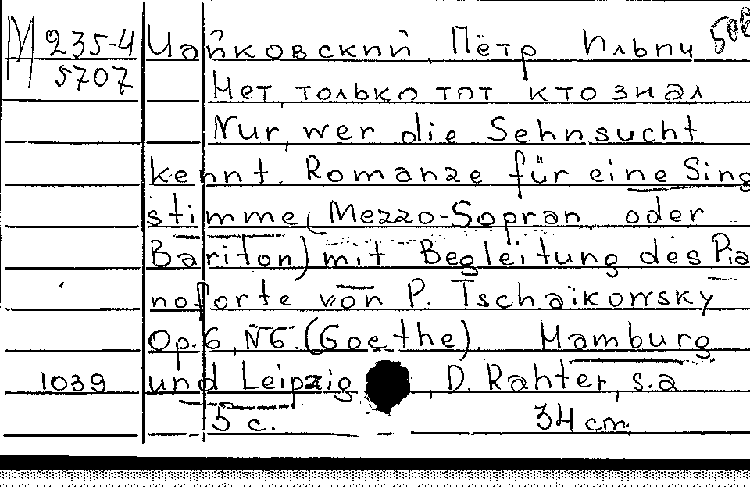 М 235-4 Чайковский, Пётр Ильич 506
5707
Нет, только тот кто знал
Nur, wer die Sehnsucht
kennt. Romanze für eine Sing
stimme (Mezzo-Sopran oder
Bariton) mit Begleitung des Pia
noforte von P. Tschaïkowsky
Op.6, N6. (Goethe). Hamburg
1039 und Leipzig, D. Rahter, s.a
5 c. 34 cm